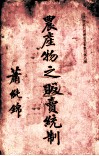 農產物之販賣統制
蕭純錦